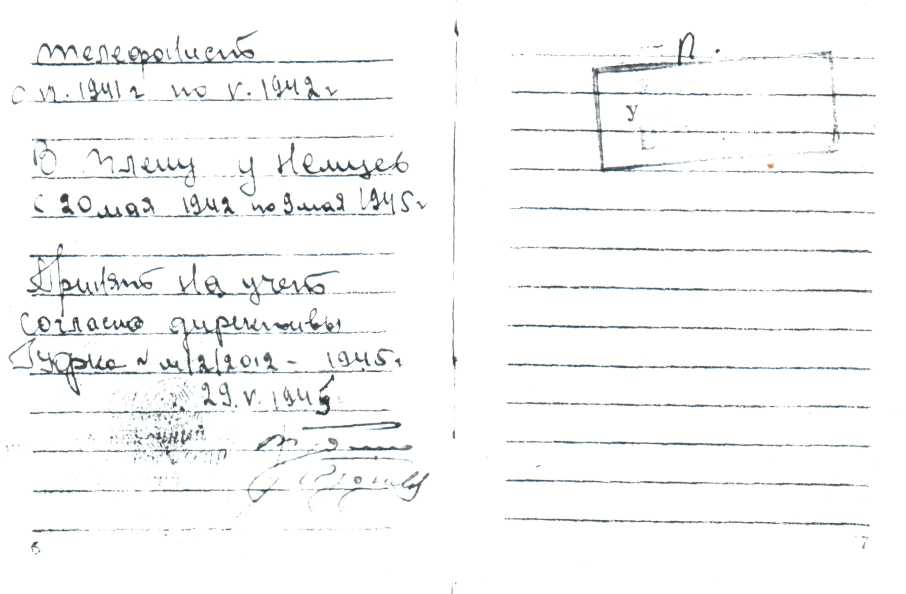 телефонист
с п. 1941 г по v. 1942 г
В плену у Немцев
с 20 мая 1942 по 9 мая 1945 г
Принят на учет
согласно директивы
№ м/2/2012 - 1945 г
29. v. 1945
6
П.
У
7